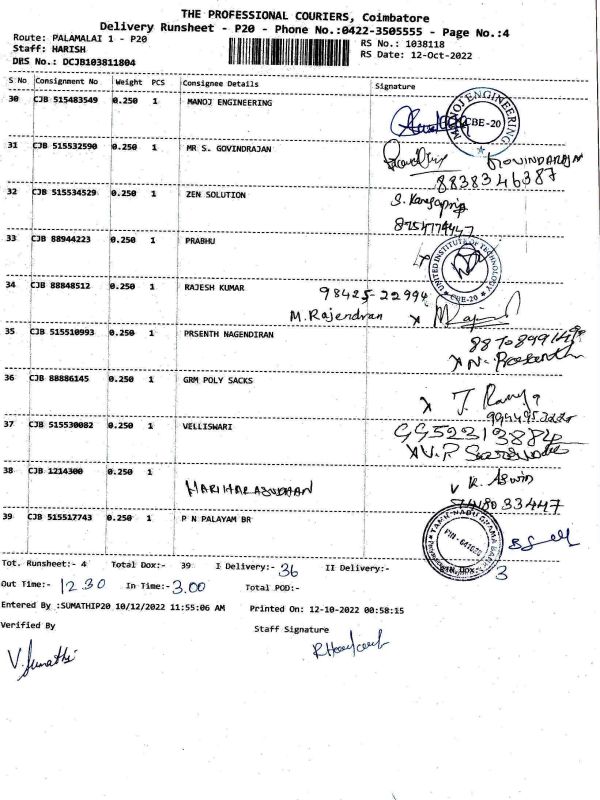 THE PROFESSIONAL COURIERS, Coimbatore
Delivery Runsheet - P20 - Phone No.:0422-3505555 - Page No.:4
Route: PALAMALAI 1 - P20
RS No.: 1038118
Staff: HARISH
RS Date: 12-Oct-2022
DRS No.: DCJB103811804
S No Consignment No Weight PCS Consignee Details Signature
30 CJB 515483549 0.250 1 MANOJ ENGINEERING
MANOJ ENGINEERING CBE-20
31 CJB 515532590 0.250 1 MR S. GOVINDRAJAN
GOVINDARAJAN
8838346387
32 CJB 515534529 0.250 1 ZEN SOLUTION
33 CJB 88944223 0.250 1 PRABHU
UNITED INSTITUTE OF TECHNOLOGY CBE-20
34 CJB 88848512 0.250 1 RAJESH KUMAR
98425-22994
M. Rajendran
35 CJB 515510993 0.250 1 PRSENTH NAGENDIRAN
36 CJB 88886145 0.250 1 GRM POLY SACKS
37 CJB 515530082 0.250 1 VELLISWARI
38 CJB 1214300 0.250 1
K. Aswin
39 CJB 515517743 0.250 1 P N PALAYAM BR
Tot. Runsheet:- 4 Total Dox:- 39 I Delivery:- 36 II Delivery:- 3
Out Time:- 12.30 In Time:- 3.00 Total POD:-
Entered By :SUMATHIP20 10/12/2022 11:55:06 AM Printed On: 12-10-2022 00:58:15
Verified By Staff Signature
V. Sumathi